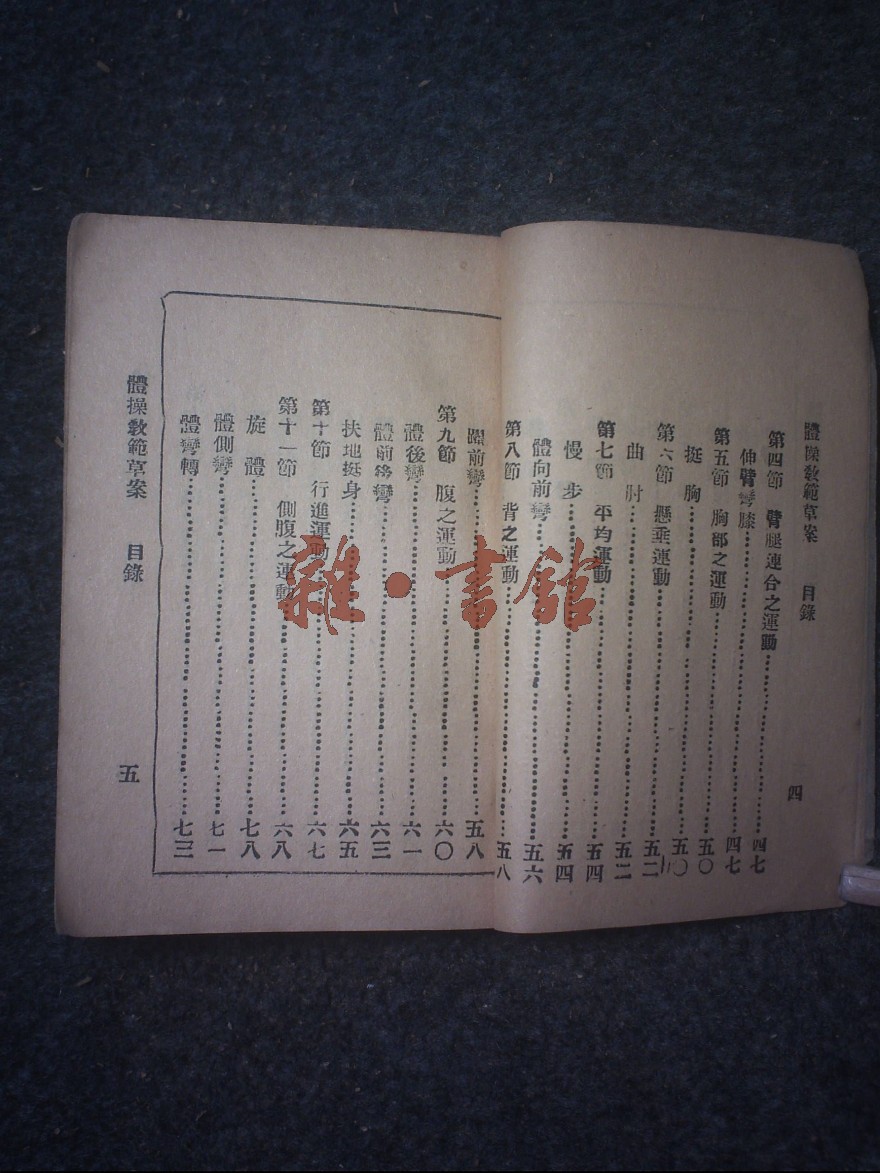 體操教範草案 目錄
四
第四節 臂腿連合之運動 四七
伸臂彎膝 四七
第五節 胸部之運動 五〇
挺胸 五〇
第六節 懸垂運動 五二
曲肘 五二
第七節 平均運動 五四
慢步 五四
體向前彎 五六
第八節 背之運動 五八
前彎 五八
第九節 腹之運動 六〇
體後彎 六一
體前彎 六三
扶地挺身 六五
第十節 行進運動 六七
第十一節 側腹之運動 六八
旋體 七八
體側彎 七一
體彎轉 七三
體操教範草案 目錄
五
雜·書館